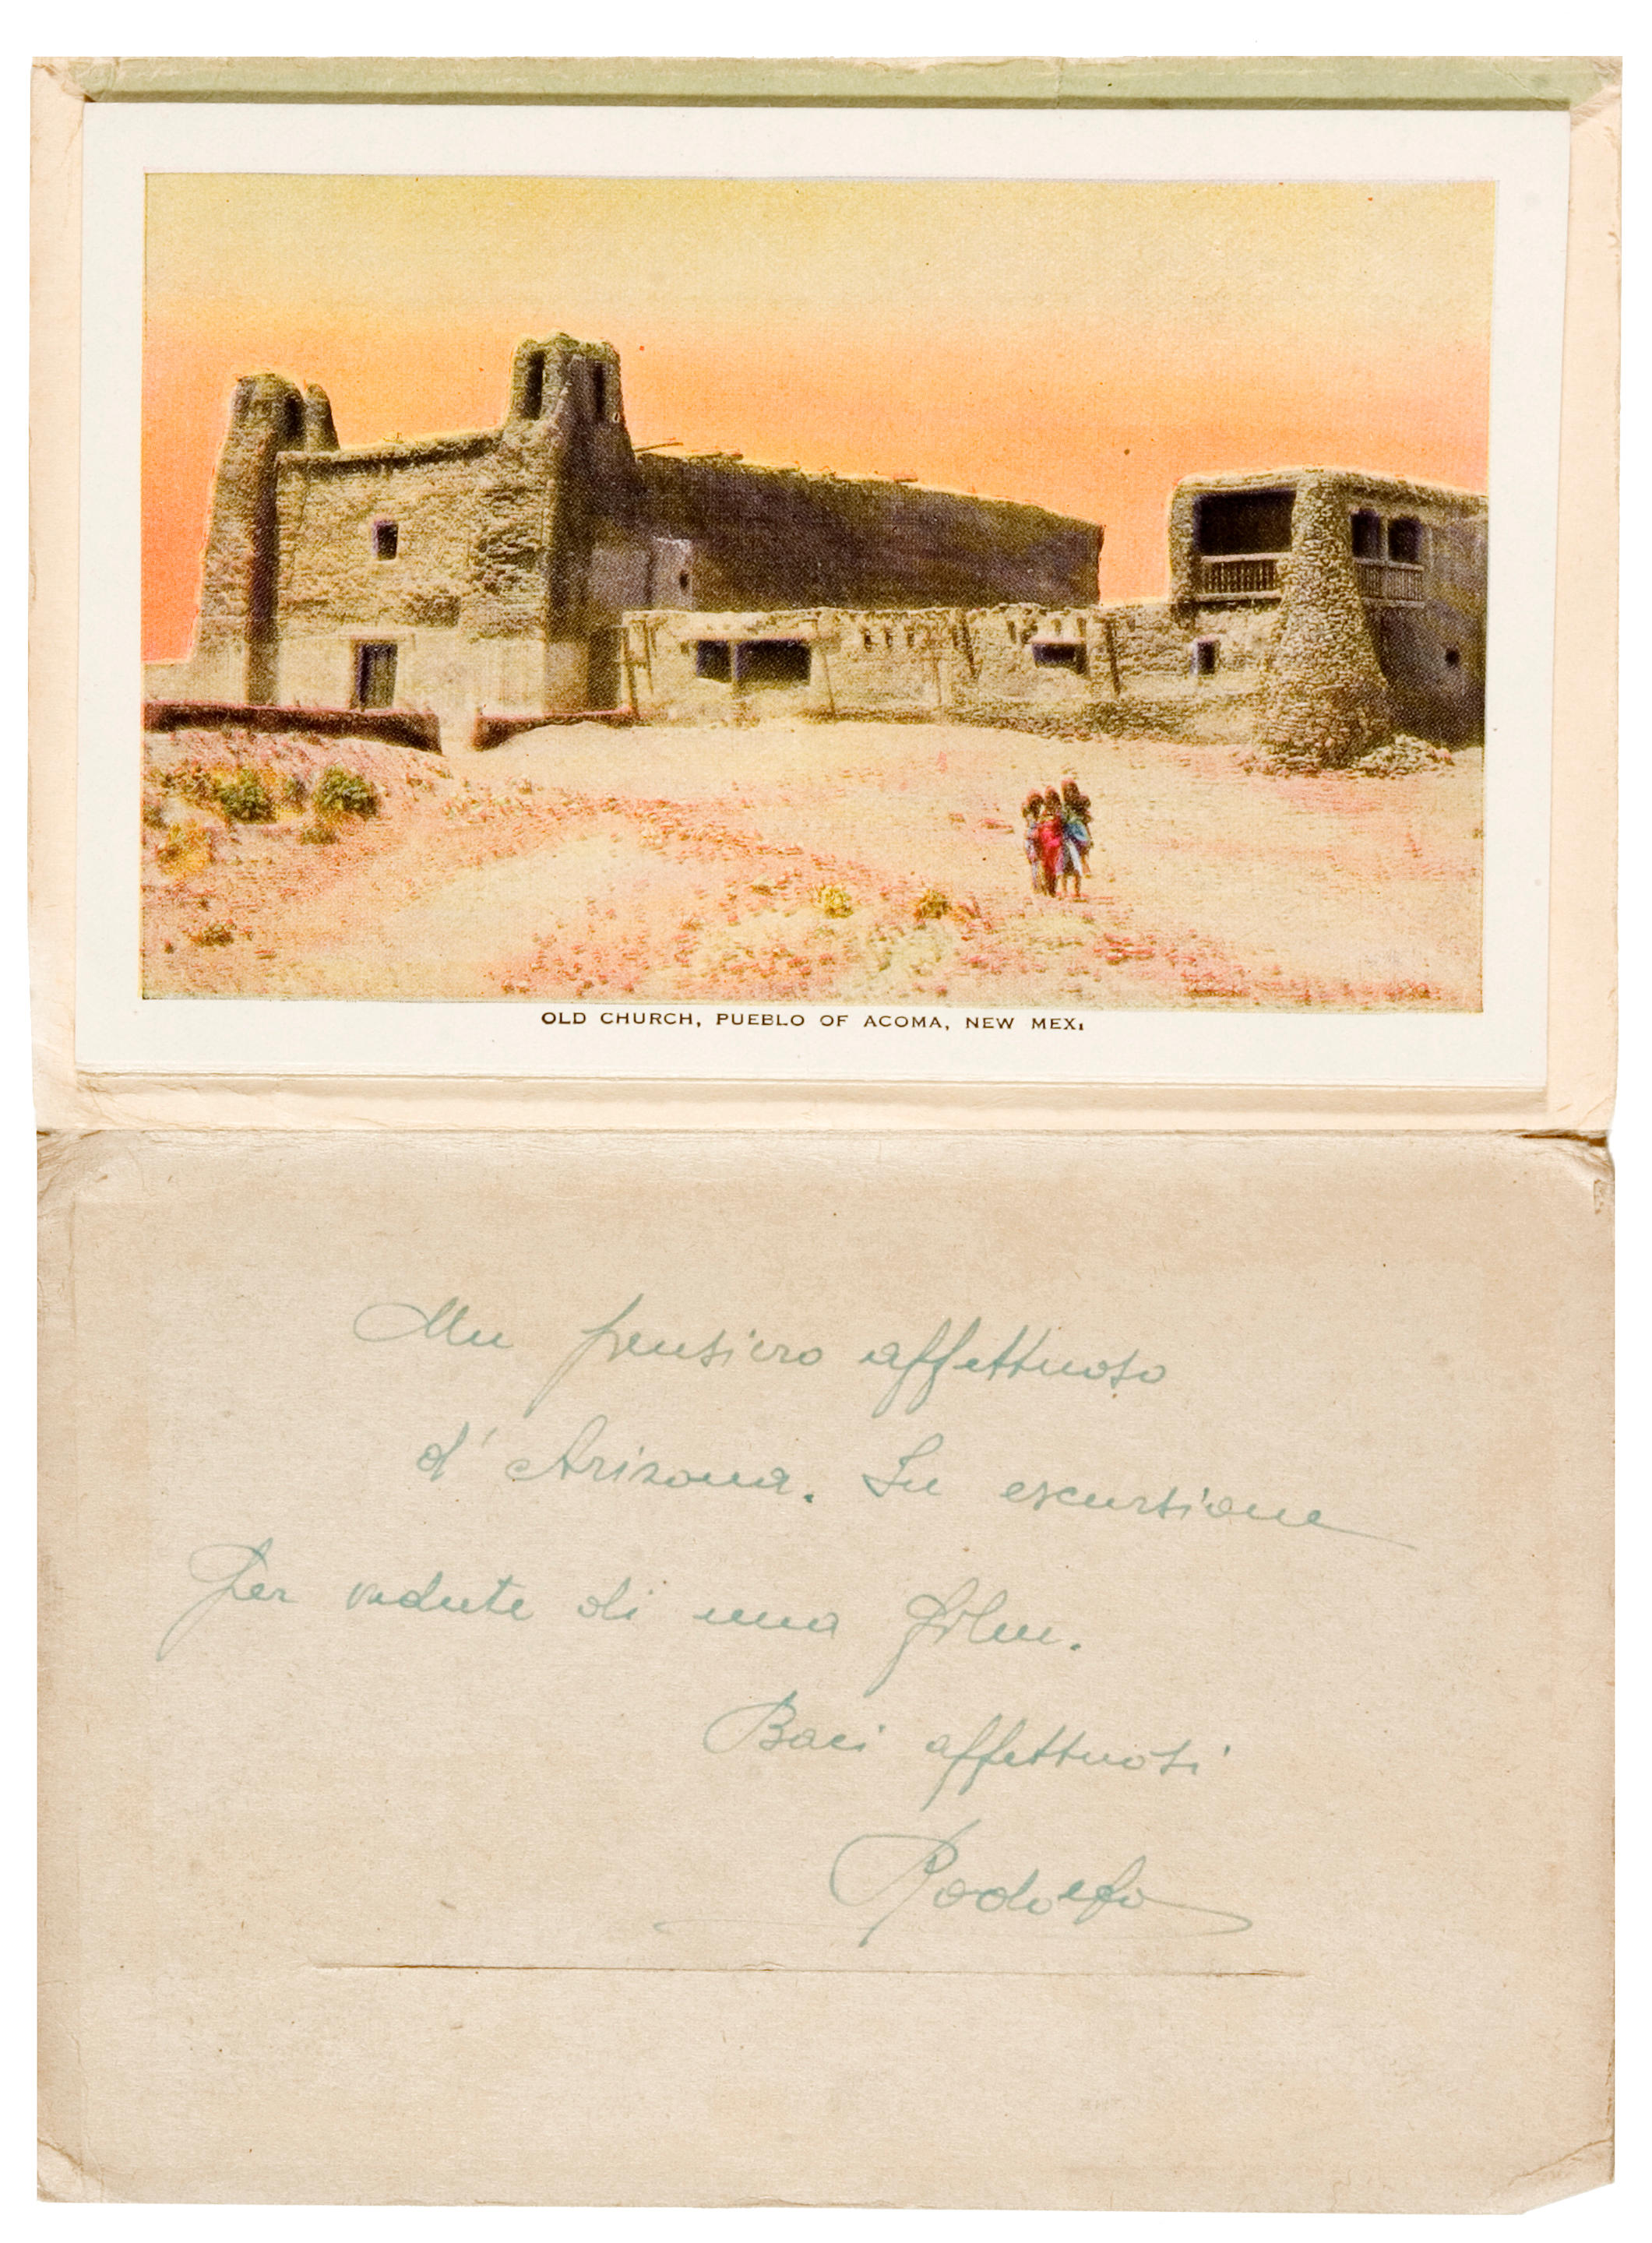 OLD CHURCH, PUEBLO OF ACOMA, NEW MEX.
Un pensiero affettuoso
d'Arizona. In escursione
per vedute di una film.
Baci affettuosi
Rodolfo